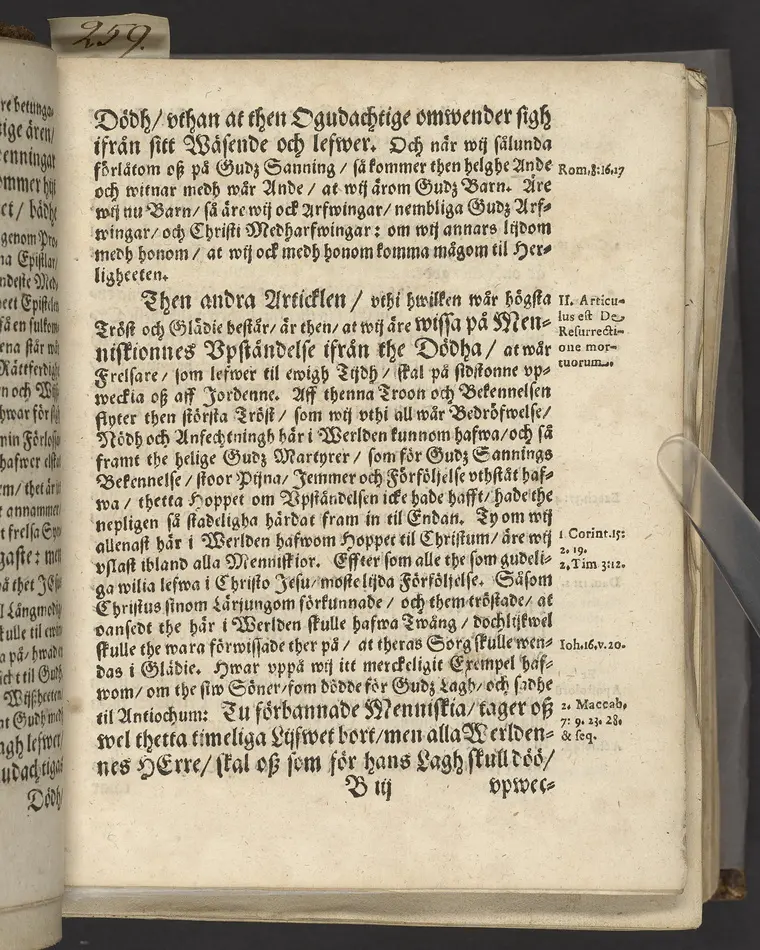 259.
re betunga
tige ären/
enningar
ommer hijt
et/ bådhe
genom Pro-
na Epistlar/
ndeste Med
eet Epistelen
så en fulkom
ena står wå
Rättferdigh
n och Wijß
hwar för sigh
min Förlossa
hafwer
em/ thet är
t annammer
t frelsa Syn
gaste: men
å thet JEsus
l Långmodigh
kulle til ewin
a på/ hwadh
til Gudh
Wijßheeten
nt Gudh medh
agh lefwer/
udachtigas
Dödh/
Dödh/ vthan at then Ogudachtige omwender sigh
ifrån sitt Wäsende och lefwer. Och när wij sålunda
förlåtom oß på Gudz Sanning/ så kommer then helghe Ande
och witnar medh wår Ande/ at wij ärom Gudz Barn. Äre
wij nu Barn/ så äre wij ock Arfwingar/ nembliga Gudz Arf-
wingar/ och Christi Medharfwingar: om wij annars lijdom
medh honom/ at wij ock medh honom komma mågom til Her-
ligheeten.
Rom. 8:16.17
Then andra Articklen/ vthi hwilken wår högsta
Tröst och Glädie består/ är then/ at wij äre wissa på Men-
niskionnes Vpståndelse ifrån the Dödha/ at wår
Frelsare/ som lefwer til ewigh Tijdh/ skal på sidstonne vp-
weckia oß aff Jordenne. Aff thenna Troon och Bekennelsen
flyter then största Tröst/ som wij vthi all wår Bedröfwelse/
Nödh och Anfechtningh här i Werlden kunnom hafwa/ och så
framt the helige Gudz Martyrer/ som för Gudz Sannings
Bekennelse/ stoor Pijna/ Jemmer och Förföljelse vthstått haf-
wa/ thetta Hoppet om Vpståndelsen icke hade hafft/ hade the
nepligen så stadeligha härdat fram in til Endan. Ty om wij
allenast här i Werlden hafwom Hoppet til Christum/ äre wij
vslast ibland alla Menniskior. Effter som alle the som gudeli-
ga wilia lefwa i Christo Jesu/ moste lijda Förföljelse. Såsom
Christus sinom Lärjungom förkunnade/ och them tröstade/ at
oansedt the här i Werlden skulle hafwa Twång/ dochlijkwel
skulle the wara förwissade ther på/ at theras Sorg skulle wen-
das i Glädie. Hwar vppå wij itt merckeligit Exempel haf-
wom/ om the siw Söner/ som dödde för Gudz Lagh/ och sadhe
til Antiochum: Tu förbannade Menniskia/ tager oß
wel thetta timeliga Lijfwet bort/ men alla Werlden-
nes HErre/ skal oß som för hans Lagh skull döö/
II. Articu-
lus est De
Resurrecti-
one mor-
tuorum.
1 Corint. 15:
2. 19.
2. Tim 3:12.
Ioh. 16. v. 20.
2. Maccab.
7: 9. 23. 28.
& seq.
B iij
vpwec-